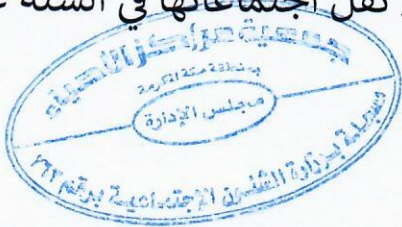 تقل اجتماعاتها في السنة
جمعية مراكز الأحياء
بمنطقة مكة المكرمة
مجلس الإدارة
مسجلة بوزارة الشئون الإجتماعية برقم